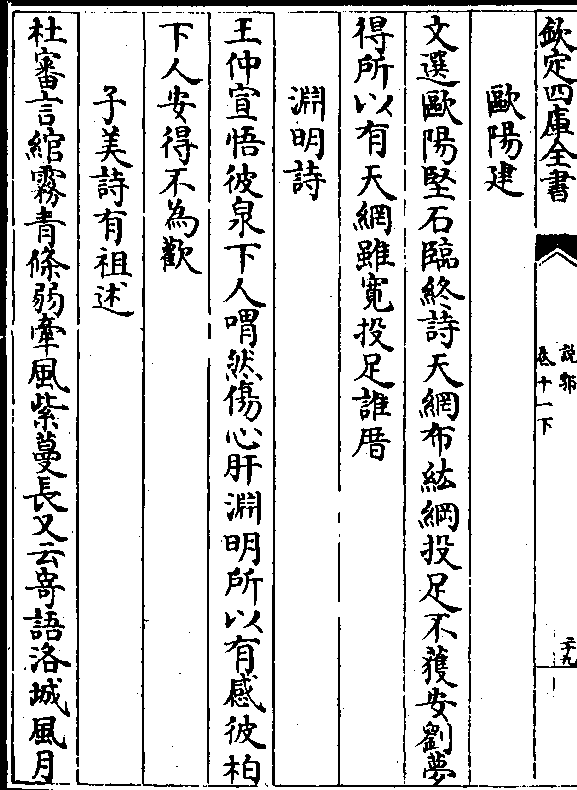 欽定四庫全書
說郛
卷十一下
二十九
歐陽建
文選歐陽堅石臨終詩天網布紘綱投足不獲安劉夢
得所以有天網雖寛投足誰厝
淵明詩
王仲宣悟彼泉下人喟然傷心肝淵明所以有感彼柏
下人安得不為歡
子美詩有祖述
杜審言綰霧青條弱牽風紫蔓長又云寄語洛城風月